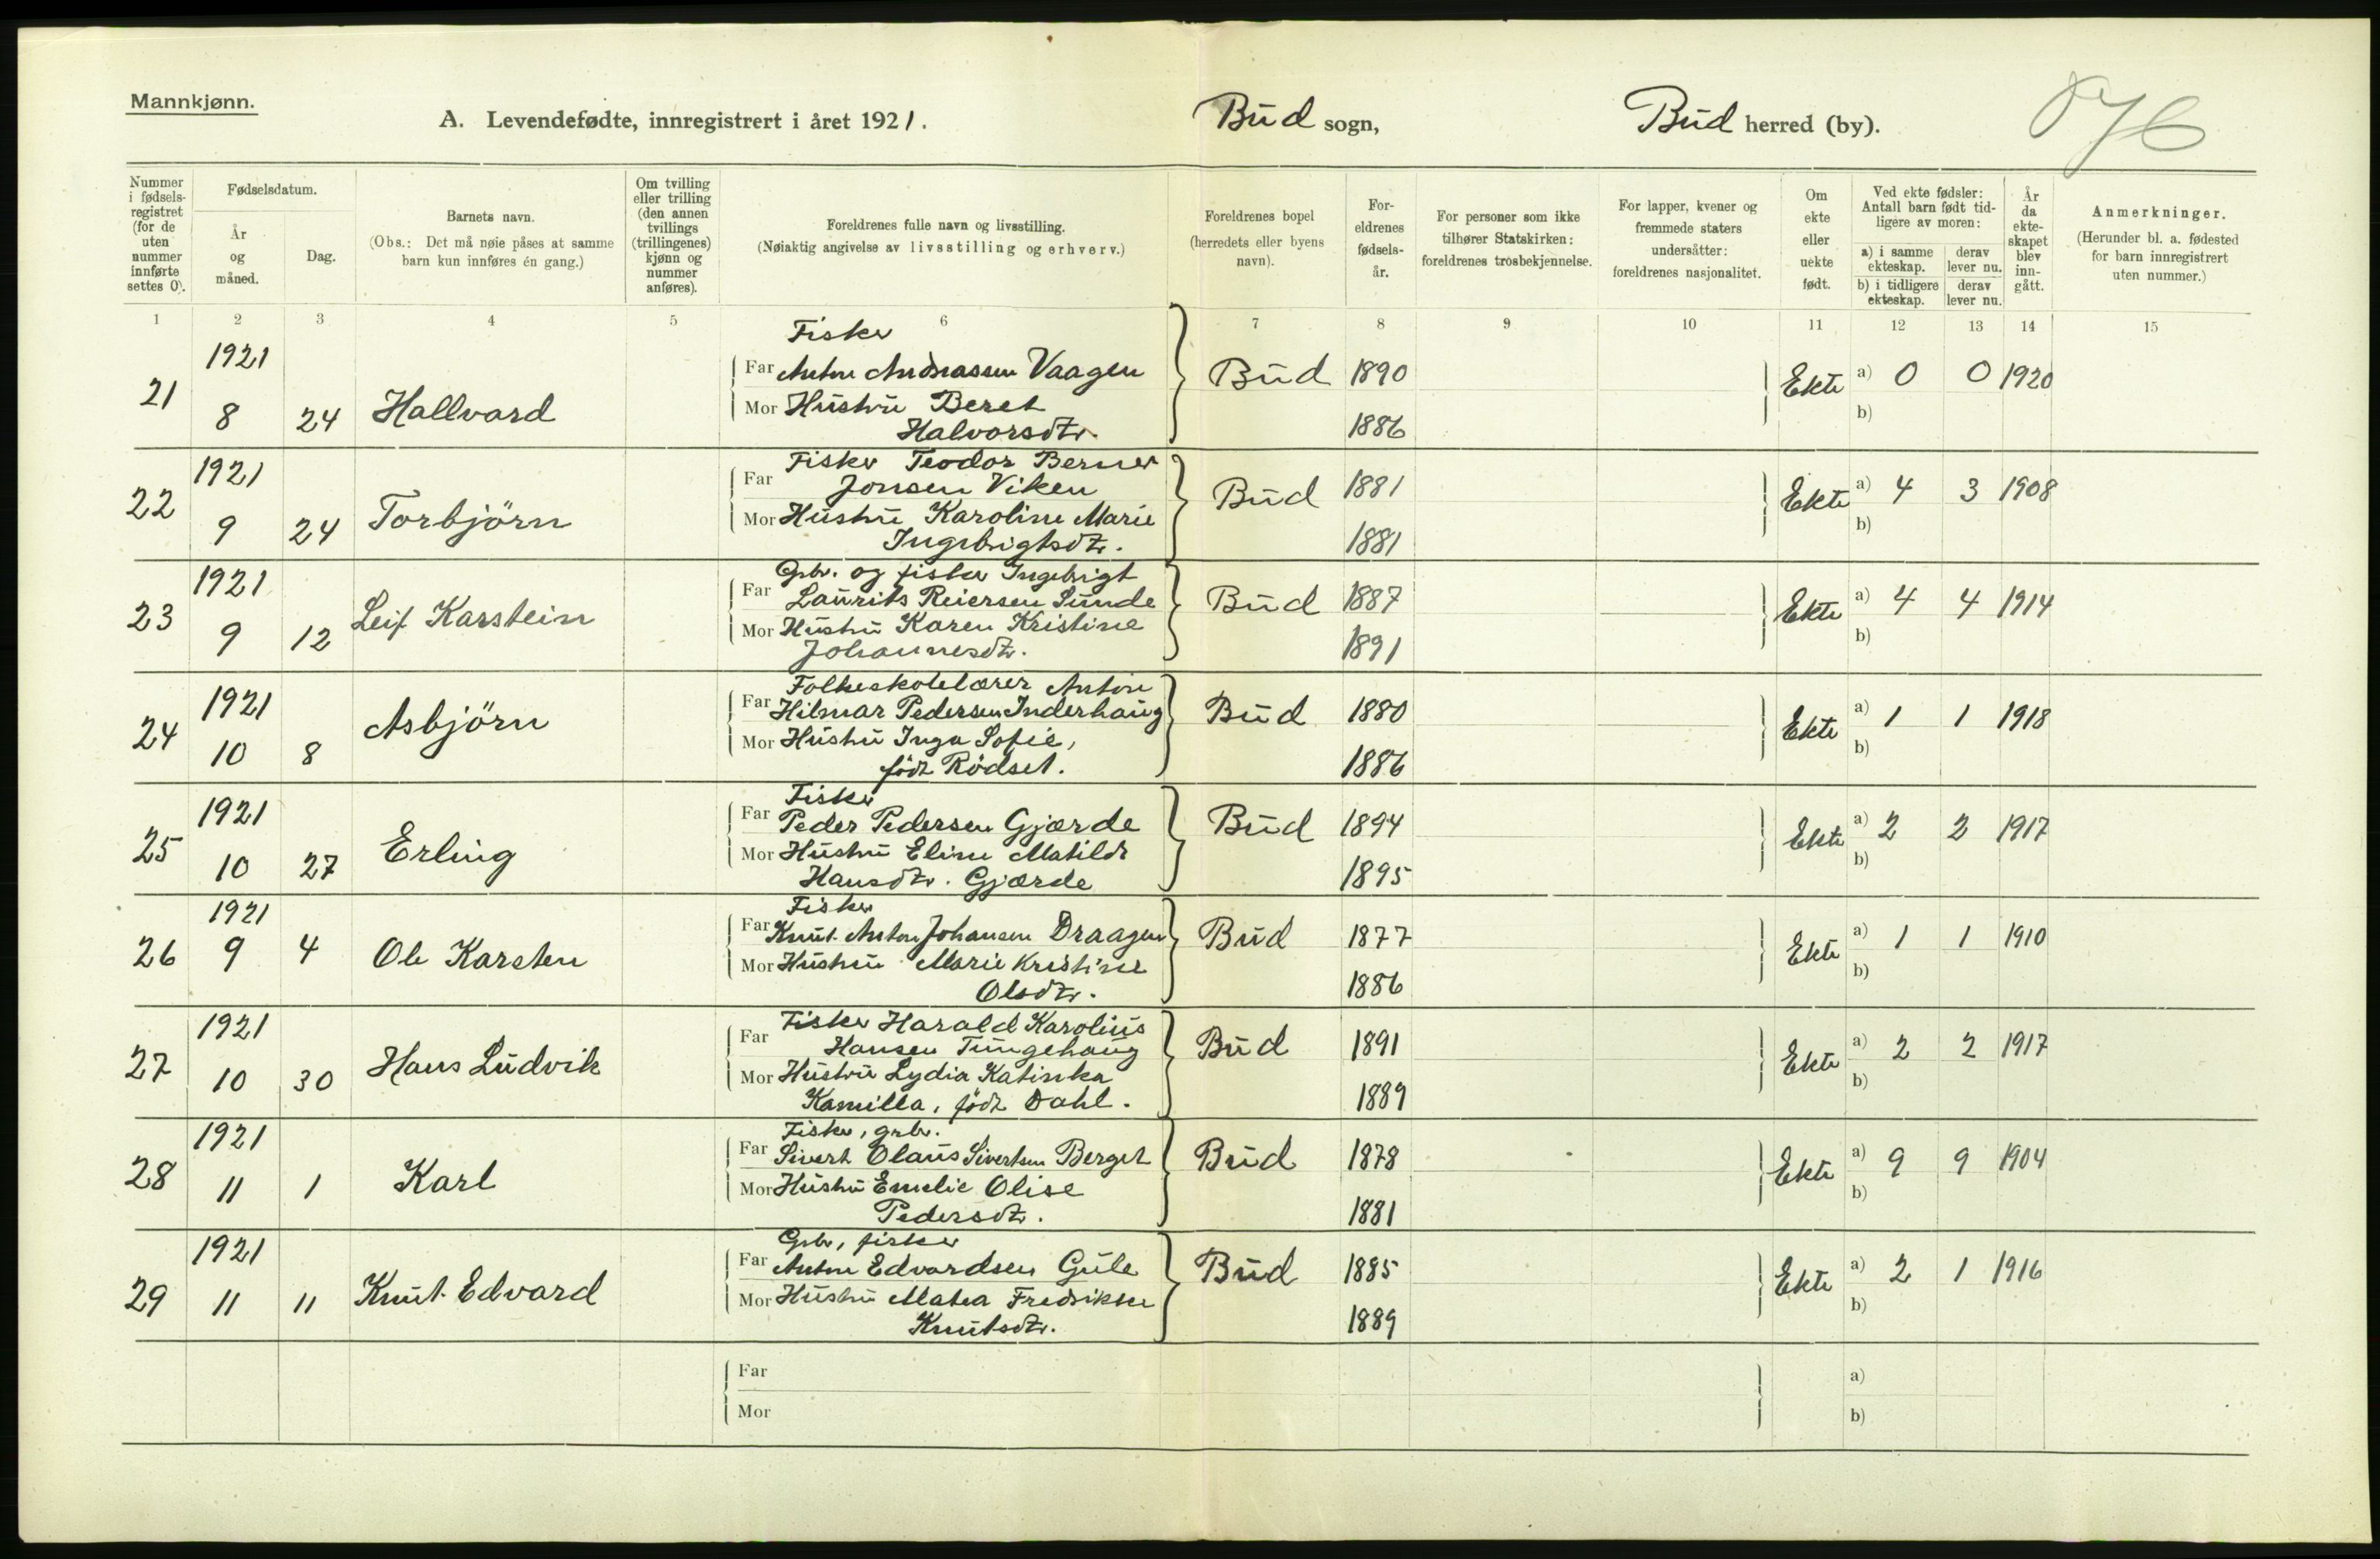 Mannkjønn.
A. Levendefødte, innregistrert i året 1921.
Bud sogn,
Bud herred (by).
Nummer i fødsels-registret (for de uten nummer innførte settes 0).
Fødselsdatum.
År og måned.
Dag.
Barnets navn.
(Obs.: Det må nøie påses at samme barn kun innføres én gang.)
Om tvilling eller trilling (den annen tvillings (trillingenes) kjønn og nummer anføres).
Foreldrenes fulle navn og livsstilling.
(Nøiaktig angivelse av livsstilling og erhverv.)
Foreldrenes bopel (herredets eller byens navn).
For-eldrenes fødsels-år.
For personer som ikke tilhører Statskirken: foreldrenes trosbekjennelse.
For lapper, kvener og fremmede staters undersåtter: foreldrenes nasjonalitet.
Om ekte eller uekte født.
Ved ekte fødsler: Antall barn født tid-ligere av moren:
a) i samme ekteskap.
derav lever nu.
b) i tidligere ekteskap.
derav lever nu.
År da ekte-skapet blev inn-gått.
Anmerkninger.
(Herunder bl. a. fødested for barn innregistrert uten nummer.)
1 2 3 4 5 6 7 8 9 10 11 12 13 14 15
Fisker
1921
21 8 24 Hallvard
Far Anton Andreassen Vaagen Bud 1890 Ekte a) 0 0 1920
Mor Hustru Beret b)
Halvorsdtr. 1886
1921
22 9 24 Torbjörn
Fisker Teodor Berner
Far Jonsen Viken Bud 1881 Ekte a) 4 3 1908
Mor Hustru Karoline Marie b)
Ingebrigtsdtr. 1881
1921
23 9 12 Leif Karstein
Grbr. og fisker Ingebrigt
Far Laurits Reiersen Sunde Bud 1887 Ekte a) 4 4 1914
Mor Hustru Karen Kristine b)
Johannesdtr. 1891
1921
24 10 8 Asbjörn
Folkeskolelærer Anton
Far Hilmar Pedersen Inderhaug Bud 1880 Ekte a) 1 1 1918
Mor Hustru Inga Sofie, b)
født Rödset. 1886
1921
25 10 27 Erling
Fisker
Far Peder Pedersen Gjærde Bud 1894 Ekte a) 2 2 1917
Mor Hustru Eline Matilde b)
Hansdtr. Gjærde 1895
1921
26 9 4 Ole Karsten
Fisker
Far Knut Anton Johansen Draagen Bud 1877 Ekte a) 1 1 1910
Mor Hustru Marie Kristine b)
Olsdtr. 1886
1921
27 10 30 Hans Ludvik
Fisker Harald Karolius
Far Hansen Tungehaug Bud 1891 Ekte a) 2 2 1917
Mor Hustru Lydia Katinka b)
Kamilla, født Dahl. 1889
1921
28 11 1 Karl
Fisker, grbr.
Far Sivert Olaus Sivertsen Berget Bud 1878 Ekte a) 9 9 1904
Mor Hustru Emelie Olise b)
Pedersdtr. 1881
1921
29 11 11 Knut Edvard
Grbr, fisker
Far Anton Edvardsen Gule Bud 1885 Ekte a) 2 1 1916
Mor Hustru Matea Fredrikke b)
Knutsdtr. 1889
Far a)
Mor b)